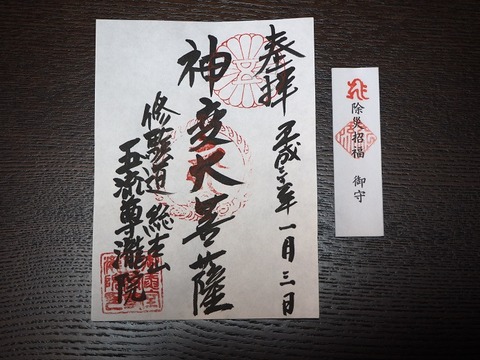 奉拝 平成年一月三日
神変大菩薩
修験道 総本山
五流尊瀧院
除災招福 御守